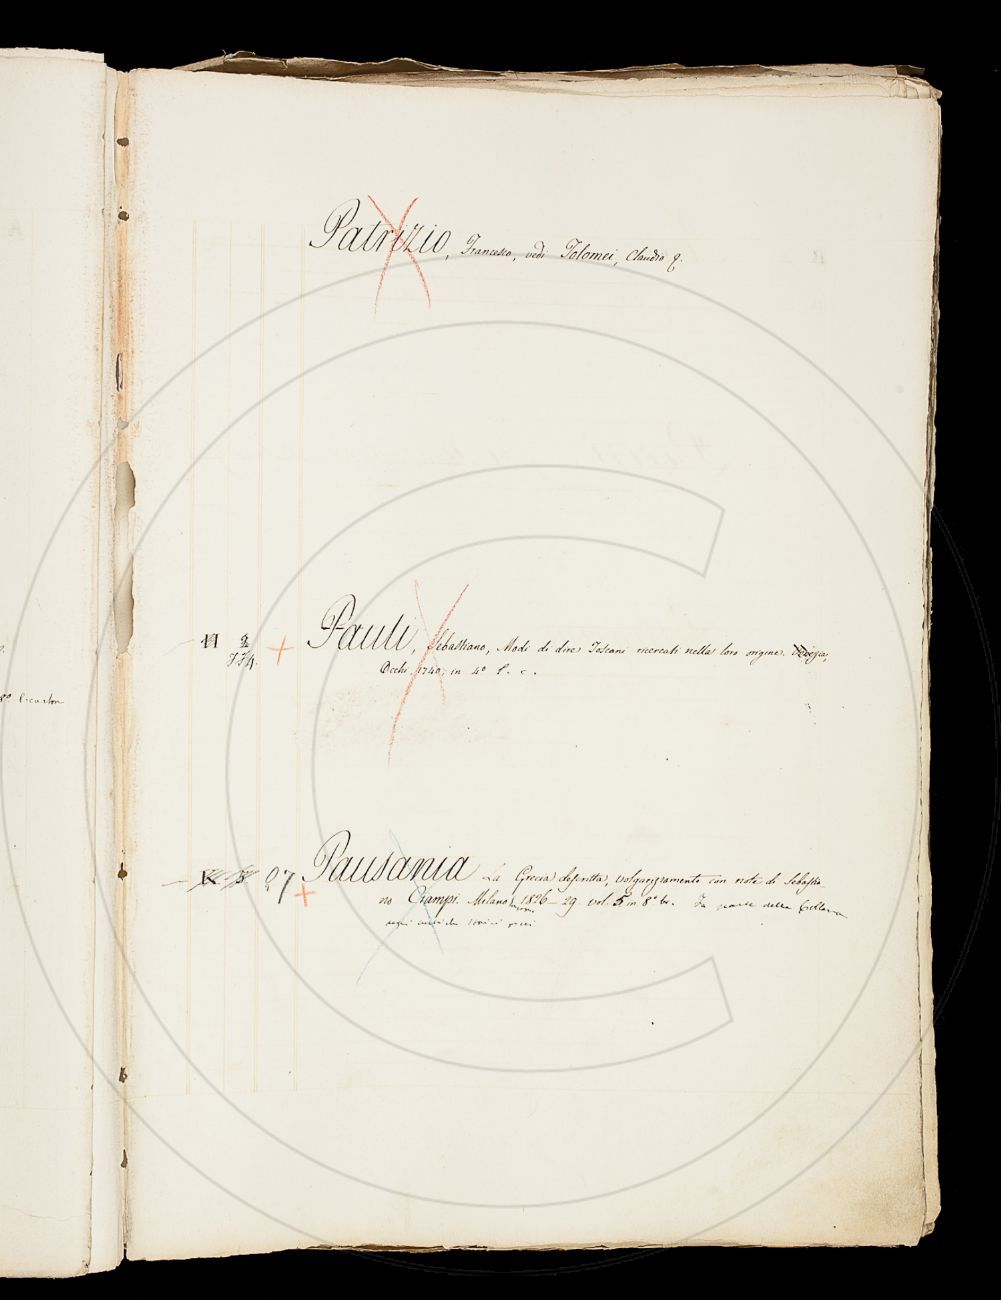 Patrizio, Francesco, vedi Tolomei, Claudio &.
8º
Pauli, Sebastiano, Modi di dire Toscani ricercati nella loro origine. Venezia,
Occhi, 1740, in 4º l. c.
27 Pausania La Grecia descritta, volgarizzamento con note di Sebastia
no Ciampi. Milano 1826–29 vol. 5 in 8º br. Fa parte della Collana